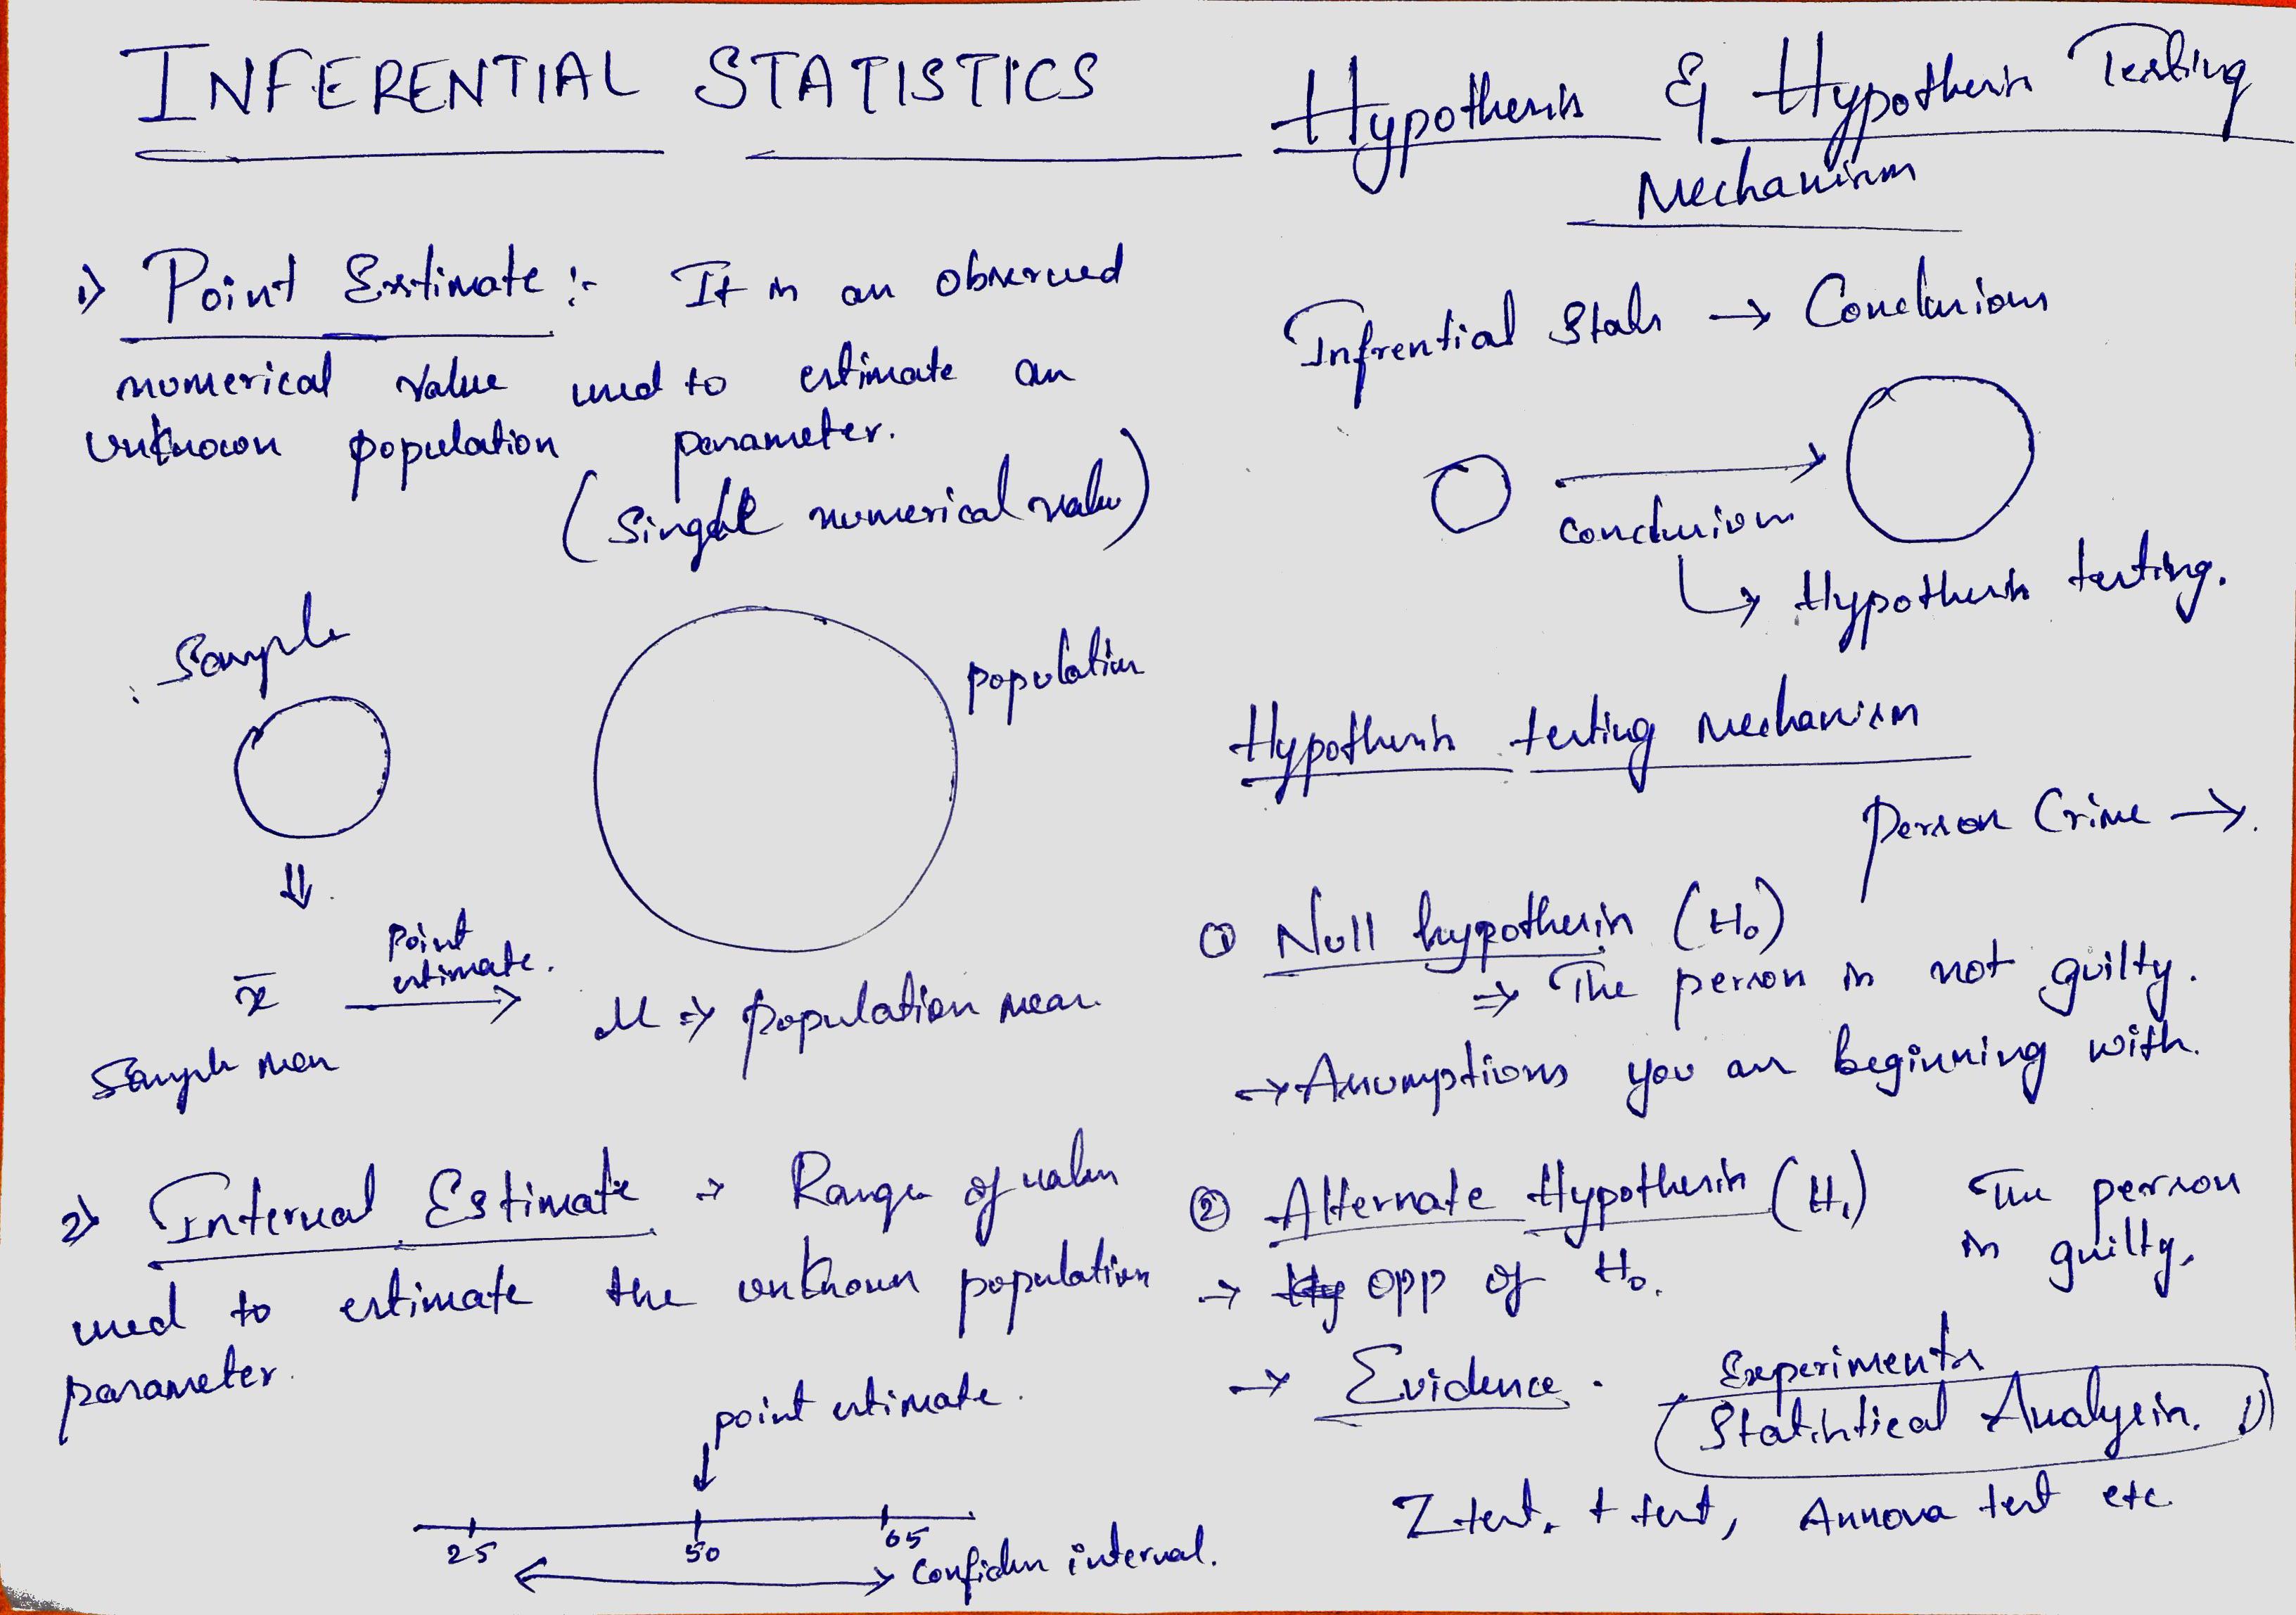 INFERENTIAL STATISTICS
1) Point Estimate :- It is an observed
numerical value used to estimate an
unknown population parameter.
(Single numerical value)
Sample
population
x̄
point
estimate.
μ => population mean
Sample mean
2) Interval Estimate -> Range of values
used to estimate the unknown population
parameter.
point estimate.
25 50 65
Confiden interval.
Hypothesis & Hypothesis Testing
Mechanism
Infrential Stats → Conclusions
conclusions
↳ Hypothesis testing.
Hypothesis testing mechanism
person Crime →.
① Null hypothesis (H₀)
⇒ The person is not guilty.
→ Assumptions you are beginning with.
② Alternate Hypothesis (H₁) The person
is guilty.
→ opp of H₀.
→ Evidence. Experiments
Statistical Analysis.
Z test, t test, Annova test etc